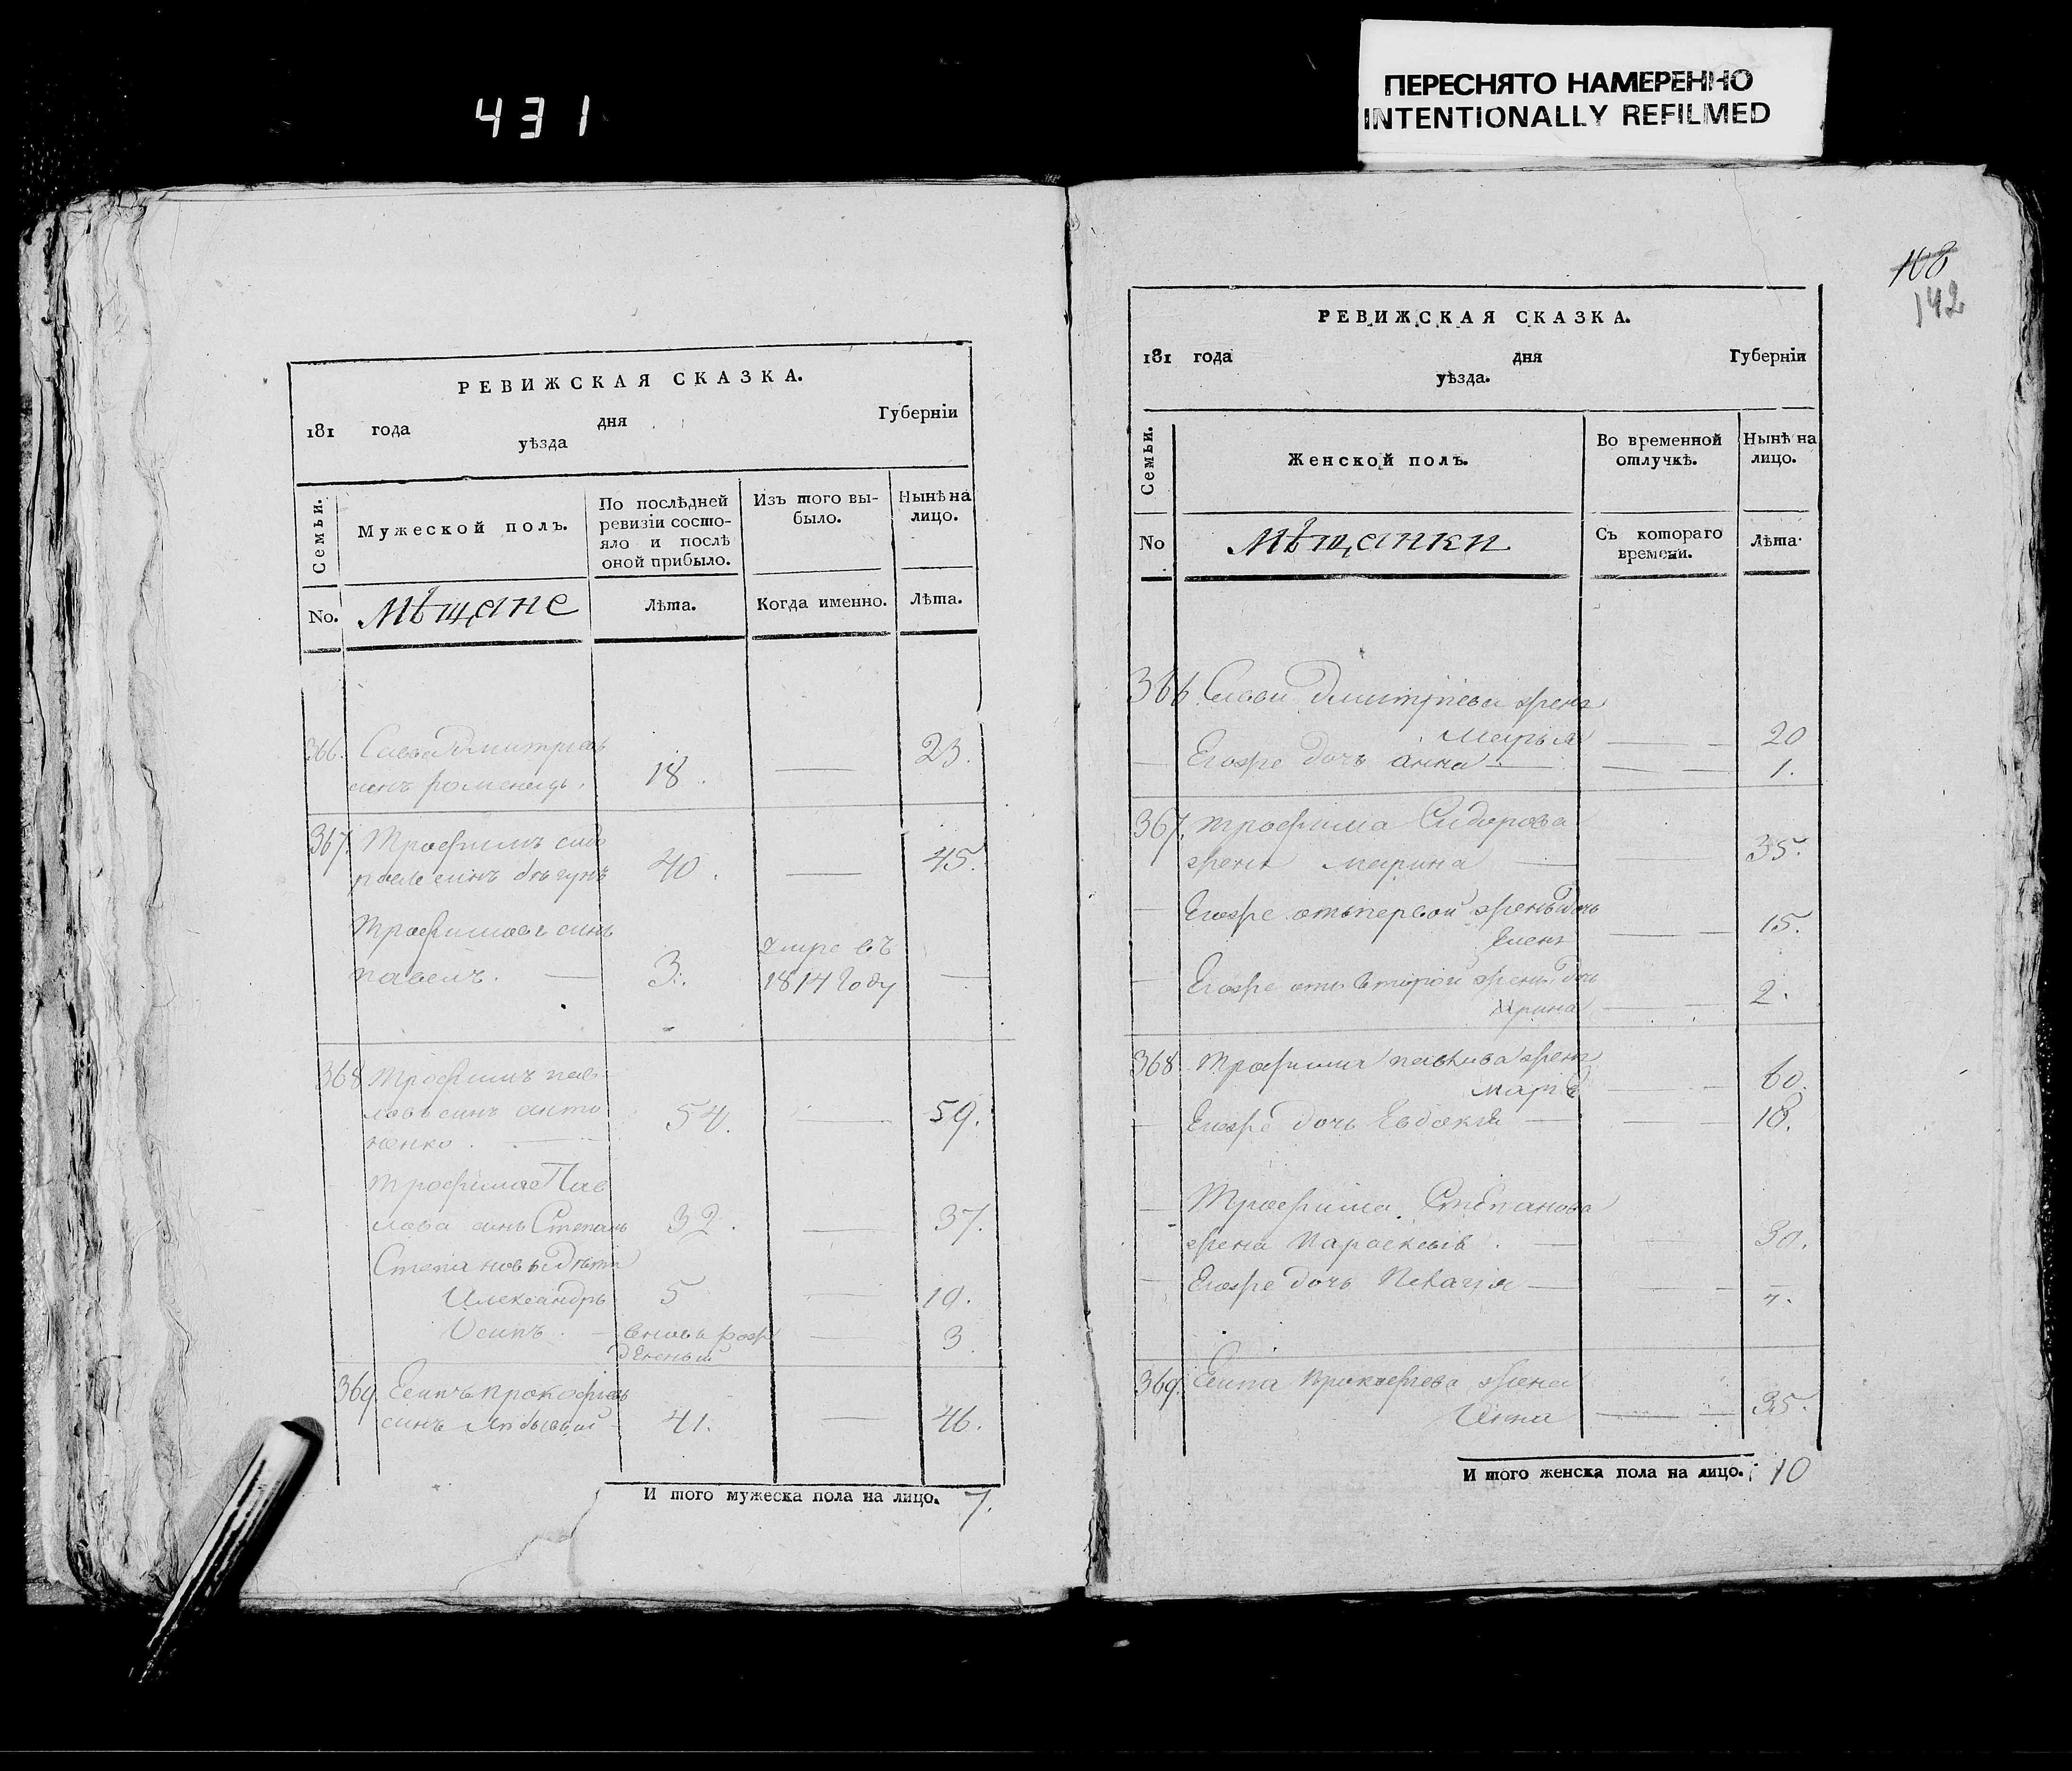 431
ПЕРЕСНЯТО НАМЕРЕННО
INTENTIONALLY REFILMED
РЕВИЖСКАЯ СКАЗКА.
181 года дня Губернїи
уѣзда
Семьи.
Мужеской полъ.
По послѣдней ревизїи состо-яло и послѣ оной прибыло.
Изъ того вы-было.
Нынѣ на лицо.
No. Мѣщане Лѣта. Когда именно. Лѣта.
366. Савва Дмитриевъ
синъ роменецъ. 18. — 23.
367. Трофимъ сидо
ровъ синъ бѣгунъ 40. — 45.
Трофимовъ синъ
павелъ. — 3. умре въ 1814 Году —
368 Трофимъ пав-
ловъ синъ анто
ненко. — 54. — 59.
Трофима Пав
лова синъ Степанъ 32. — 37.
Степановы дѣти
Александръ 5 — 10.
Осипъ. — вновь рож
денный — 3
369. Осипъ прокофиевъ
синъ 41. — 46.
И того мужеска пола на лицо. 7.
168
142
РЕВИЖСКАЯ СКАЗКА.
181 года дня Губернїи
уѣзда.
Семьи.
Женской полъ.
Во временной отлучкѣ.
Нынѣ на лицо.
No Мѣщанки Съ котораго времени. Лѣта.
366. Савы Дмитріева жена
Марья — — 20
— Егоже дочь анна — — — 1.
367. Трофима Сидорова
жена марина — 35.
— Егоже отъ первой жены дочь
Елена — — 15.
— Егоже отъ второй жены дочь
Ирина — — 2.
368. Трофима павлова жена
— — 60.
— Егоже дочь Евдокия — — — 18.
— Трофима Степанова
жена Параскевия. — — — 30.
— Егоже дочь Пелагия — — — 7.
369. Осипа Прокофиева жена
Анна — — 35.
И того женска пола на лицо. 10